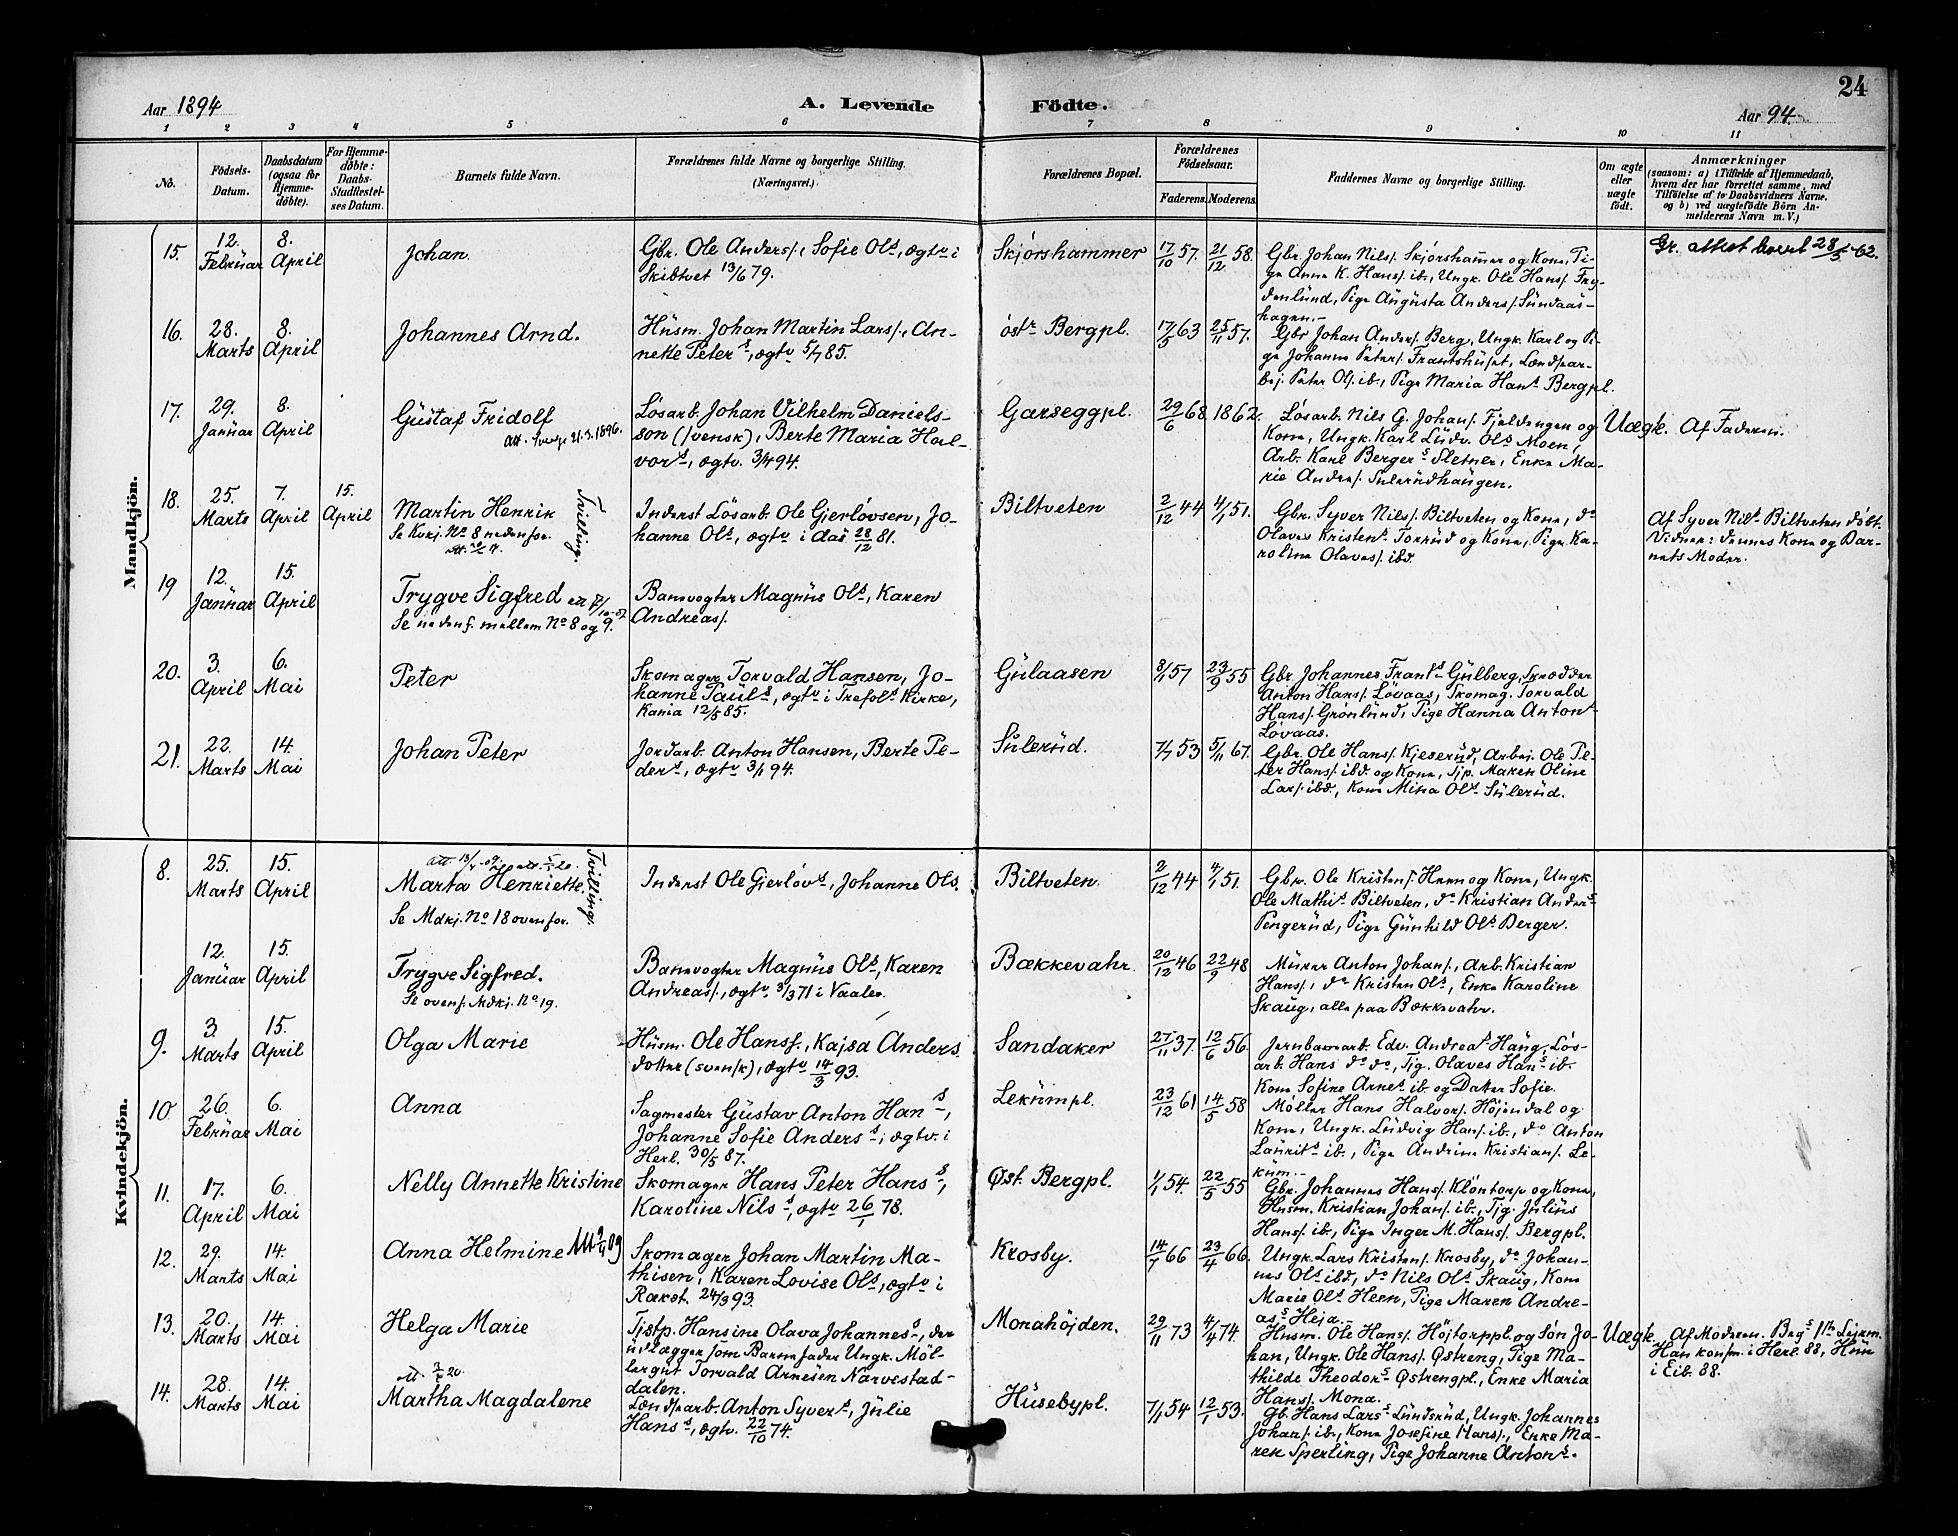 24
Aar 1894
A. Levende Födte.
Aar 94.
1 2 3 4 5 6 7 8 9 10 11
No.
Födsels-Datum.
Daabsdatum (ogsaa for Hjemme-döbte).
For Hjemme-döbte: Daabs-Stadfæstel-ses Datum.
Barnets fulde Navn.
Forældrenes fulde Navne og borgerlige Stilling.
(Næringsvei.)
Forældrenes Bopæl.
Forældrenes Födselsaar.
Faderens. Moderens.
Faddernes Navne og borgerlige Stilling.
Om ægte eller uægte födt.
Anmærkninger
(saasom: a) i Tilfælde af Hjemmedaab,
hvem der har forrettet samme, med
Tilföielse af to Daabsvidners Navne,
og b) ved uægtefödte Börn An-
melderens Navn m. V.)
Mandkjön.
15. 12. Februar 8. April
Johan
Gbr. Ole Anders/., Sofie Ols., ægtv. i
Skibtvet 13/6 79.
Skjørshammer
17/10 57. 21/12 58.
Gbr. Johan Nils/. Skjørshammer og Kone, Pi-
ge Anna K. Hans/. ib., Ungk. Ole Hans/. Fry-
denlund, Pige Augusta Anders/. Sundaas-
hagen.-
Gr. attest 28/5 -62.
16. 28. Marts 8. April
Johannes Arnd.
Husm. Johan Martin Lars/., An-
nette Peters., ægtv. 5/7 85.
östr. Bergpl.
17/5 63 25/11 57.
Gbr Johan Anders/. Berg, Ungk. Karl og Pi-
ge Johanne Peters/. Frantshuset, Lændspar-
bej. Peter Ols/. ib., Pige Maria Hans. Bergpl.
17. 29. Januar 8. April
Gustaf Fridolf
att. Sverige 21.3.1896.
Løsarb. Johan Vilhelm Daniels-
son (svensk), Berte Maria Hal-
vors., ægtv. 3/4 94.
Garseggpl.
29/6 68. 1862.
Løsarb. Nils G. Johans/. Fjeldengen og
Kone, Ungk. Karl Ludv. Ols. Moen,
Arb. Karl Bergers. Sletner, Enke Ma-
rie Anders/. Sulerudhaugen.
Uægte. Af Faderen.
18. 25. Marts 7. April 15. April
Martin Henrik
Se Kvkj. No 8 nedenfor.
Tvilling.
Inderst Løsarb. Ole Gjerløvsen, Jo-
hanne Ols., ægtv. i Aas 28/12 81.
Biltveten
2/12 44 4/1 51.
Gbr. Syver Nils/. Biltveten og Kone, do
Olaves Kristens. Torrud og Kone, Pige Ka-
roline Olaves/. ibd.
Af Syver Nils. Biltveten døbt.
Vidner: dennes Kone og Bar-
nets Moder.
19 12. Januar 15. April
Trygve Sigfred
Se nedenf. mellem No 8 og 9.
Banevogter Magnus Ols., Karen
Andreas/.
20. 3. April 6. Mai
Peter
Skomager Torvald Hansen, Jo-
hanne Pauls., ægtv. i Trefol. Kirke,
Krania 12/5 85.
Gulaasen
8/1 57 23/9 55
Gbr. Johannes Frants. Gulberg, Skrædder
Anton Hans/. Løvaas, Skomag. Torvald
Hans/. Grønlund, Pige Hanna Antons.
Løvaas.
21. 22. Marts 14. Mai
Johan Peter
Jordarb. Anton Hansen, Berte Pe-
ders., ægtv. 3/1 94.
Sulerud.
7/7 53 5/11 67.
Gbr. Ole Hans/. Kjeserud, Arbei. Ole Pe-
ter Hans/. ibd. og Kone, Tjp. Maren Oline
Lars/. ibd., Kone Mina Ols. Sulerud.
Kvindekjön.
8. 25. Marts 15. April
Marta Henriette.
Se Mdkj. No 18 ovenfor.
Tvilling.
Inderst Ole Gjerløvs., Johanne Ols.
Biltveten.
2/12 44 4/1 51.
Gbr. Ole Kristens/. Heen og Kone, Ungk.
Ole Mathis. Biltveten, do Kristian Anders.
Pengerud, Pige Gunhild Ols. Berger.
12. Januar 15. April
Trygve Sigfred.
Se ovenf. Mdkj. No 19.
Banevogter Magnus Ols., Karen
Andreas/., ægtv. 3/3 71 i Vaaler.
Bækkevahr.
20/12 46 22/9 48
Murer Anton Johans/., Arb. Kristian
Hans/., do Kristen Ols., Enke Karoline
Skaug, alle paa Bækkevahr.
9. 3. Marts 15. April
Olga Marie
Husm. Ole Hans/., Kajsa Anders-
dotter (svensk), ægtv. 14/3 93.
Sandaker
27/11 37. 12/6 56.
Jernbanearb. Edv. Andreas. Haug, Løs-
arb. Hans do do, Tjg. Olaves Hans. ib.
Kone Sofine Arnes. ib. og Datter Sofie.
10 26. Februar 6. Mai
Anna
Sagmester Gustav Anton Hans.,
Johanne Sofie Anders., ægtv. i
Herl. 30/5 87.
Lekumpl.
23/12 61 14/5 58
Møller Hans Halvors/. Højendal og
Kone, Ungk. Ludvig Hans/. ib., do Anton
Laurits. ib., Pige Andrine Kristians/. Le-
kum.-
11. 17. April 6. Mai
Nelly Annette Kristine
Skomager Hans Peter Hans.,
Karoline Nils., ægtv. 26/1 78.
Øst. Bergpl.
1/1 54. 22/5 55
Gbr. Johannes Hans/. Kløntorp og Kone,
Husm. Kristian Johans/. ib., Tjg. Julius
Hans/. ib., Pige Inger M. Hans/. Bergpl.
12. 29. Marts 14. Mai
Anna Helmine
Skomager Johan Martin Ma-
thisen, Karen Lovise Ols., ægtv. i
Rakst. 24/3 93.
Krosby.
14/7 66 23/4 66.
Ungk. Lars Kristens/. Krosby, do Johan-
nes Ols. ibd, do Nils Ols. Skaug, Kone
Marie Ols. Heen, Pige Maren Andre-
as. Heja.-
13. 20. Marts 14. Mai
Helga Marie
Tjstp. Hansine Olava Johannes., der
udlægger som Barnefader Ungk. Møl-
lergut Torvald Arnesen Narvestad-
dalen.
Monahöjden.
29/11 73 4/4 74.
Husm. Ole Hans/. Höjtorppl. og Søn Jo-
han, Ungk. Ole Hans/. Østreng, Pige Ma-
thilde Theodors. Østrengpl., Enke Maria
Hans/. Mona.
Uægte. Af Moderen. Begs. 1ste Lejerm.
Han konfm. i Herl. 88, Hun
i Eib. 88.
14. 28. Marts 14. Mai
Martha Magdalene
Lændsparb. Anton Syvers., Julie
Hans., ægtv. 22/10 74.
Husebypl.
7/1 54 12/1 53.
Gb. Hans Lars. Lundsrud, Ungk. Johannes
Johans/. ib., Kone Josefine Hans/., Enke Ma-
ren Sperling, Pige Johanne Antons.